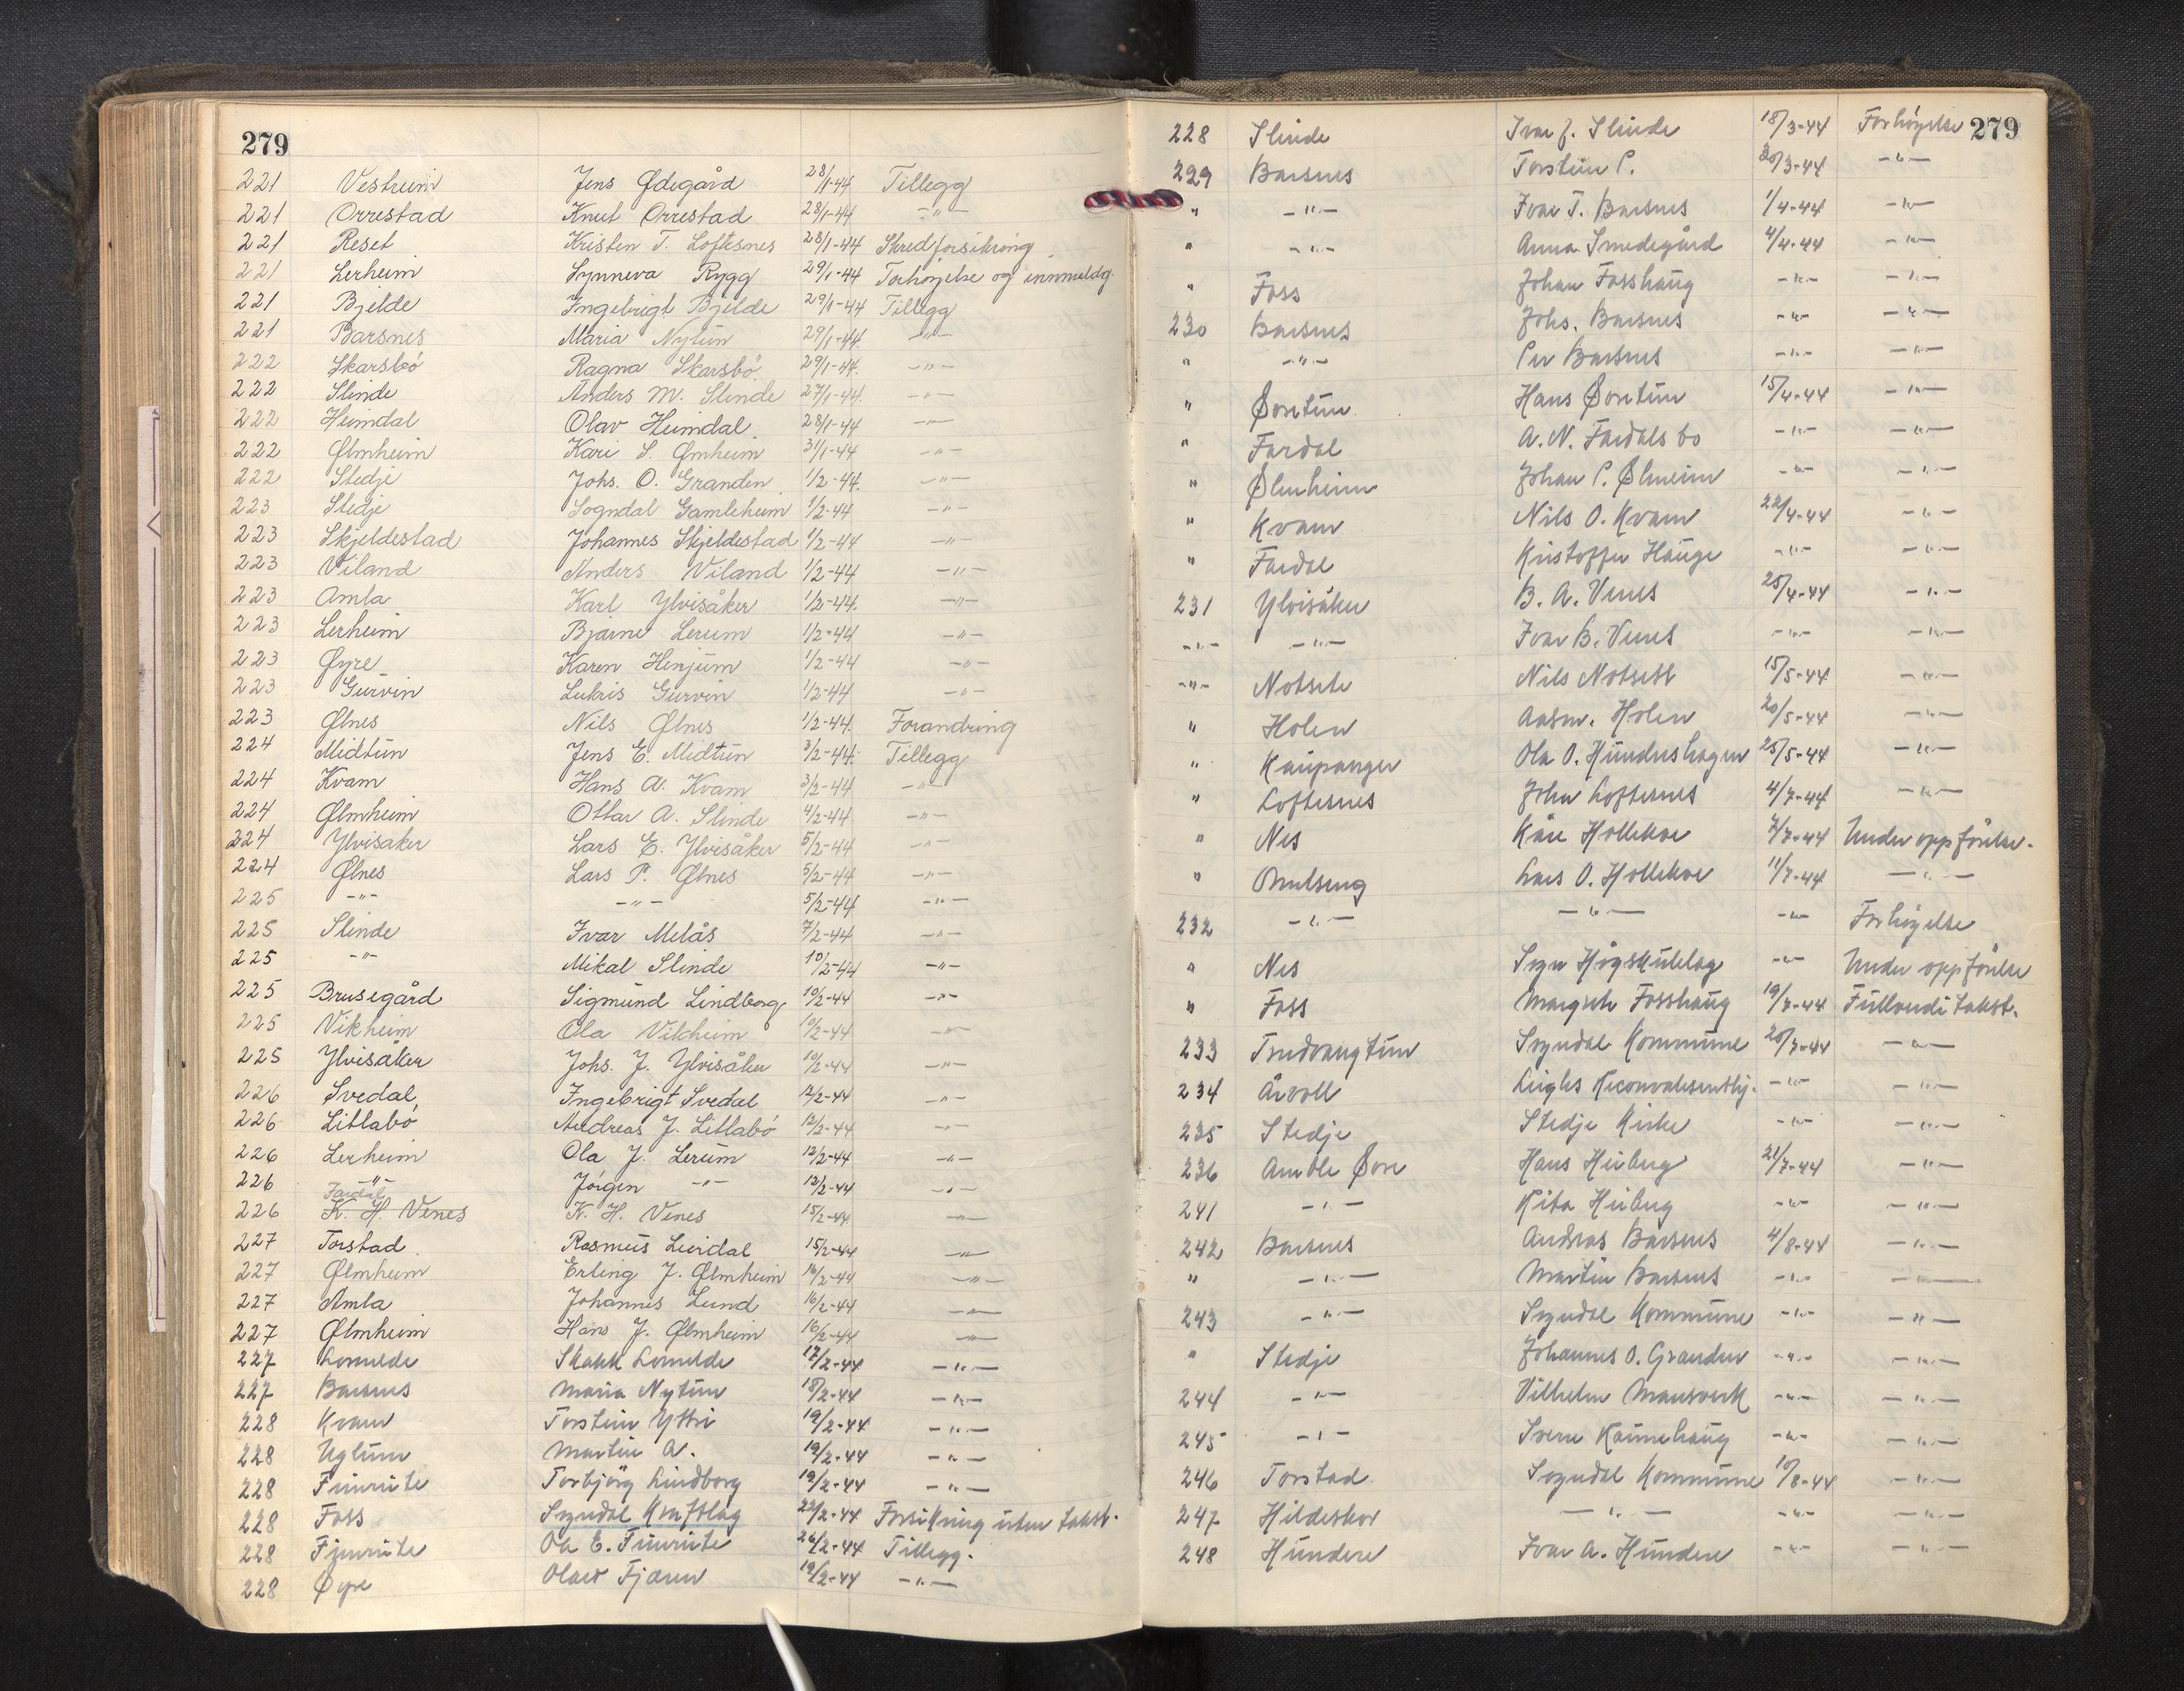 279
221 Vestreim Jens Ødegård 28/1-44 Tillegg
221 Orrestad Knut Orrestad 28/1-44 -"-
221 Reset Kristen T. Loftesnes 28/1-44 Skredforsikring
221 Lerheim Synneva Rygg 29/1-44 Forhøyelse og innmeldg.
221 Bjelde Ingebrigt Bjelde 29/1-44 Tillegg
221 Barsnes Maria Nytun 29/1-44 -"-
222 Skarsbö Ragna Skarsbö 29/1-44. -"-
222 Slinde Anders M. Slinde 27/1-44. -"-
222 Heimdal Olav Heimdal 28/1-44 -"-
222 Ølmheim Kari S. Ømheim 31/1-44 -"-
222 Stedje Johs. O. Granden 1/2-44. -"-
223 Stedje Sogndal Gamleheim 1/2-44 -"-
223 Skjeldestad Johannes Skjeldestad 1/2-44 -"-
223 Viland Anders Viland 1/2-44 -"-
223 Amla Karl Ylvisåker 1/2-44. -"-
223 Lerheim Bjarne Lerum 1/2-44 -"-
223 Øyre Karen Henjum 1/2-44 -"-
223 Gurvin Lukris Gurvin 1/2-44 -"-
223 Ølnes Nils Ølnes 1/2-44. Forandring
224 Midtun Jens E. Midtun 3/2-44. Tillegg
224 Kvam Hans A. Kvam 3/2-44 -"-
224 Ølmheim Ottar A. Slinde 4/2-44 -"-
224 Ylvisaker Lars E. Ylvisåker 5/2-44 -"-
224 Ølnes Lars P. Ølnes 5/2-44 -"-
225 -"- -"- 5/2-44 -"-
225 Slinde Ivar Melås 7/2-44 -"-
225 -"- Mikal Slinde 10/2-44 -"-
225 Brusegård Sigmund Lindborg 10/2-44 -"-
225 Vikheim Ola Vikheim 10/2-44 -"-
225 Ylvisåker Johs. J. Ylvisåker 10/2-44 -"-
226 Svedal Ingebrigt Svedal 12/2-44 -"-
226 Litlabö Andreas J. Litlabö 12/2-44 -"-
226 Lerheim Ola J. Lerum 12/2-44 -"-
226 -"- Jörgen -"- 12/2-44 -"-
Fardal
226 K. H. Venes K. H. Venes 15/2-44 -"-
227 Torstad Rasmus Leirdal 15/2-44 -"-
227 Ølmheim Erling J. Ølmheim 16/2-44 -"-
227 Amla Johannes Lund 16/2-44 -"-
227 Ølmheim Hans J. Ølmheim 16/2-44 -"-
227 Lomelde Lomelde 17/2-44 -"-
227 Barsnes Maria Nytun 18/2-44 -"-
228 Kvam Torstein Yttri 19/2-44 -"-
228 Uglum Martin A. 19/2-44 -"-
228 Fimreite Torbjörg Lindborg 19/2-44 -"-
228 Foss Sogndal Kraftlag 22/2-44 Forsikring uten takst.
228 Fimreite Ola E. Fimreite 26/2-44 Tillegg.
228 Øyre Olav Fjæren 19/2-44 -"-
279
228 Slinde Ivar J. Slinde 18/3-44 Forhöyelse
229 Barsnes Torstein P. 20/3-44 -"-
" -"- Ivar T. Barsnes 1/4-44 -"-
" -"- Anna Smedegård 4/4-44 -"-
" Foss Johan Fosshaug -"- -"-
230 Barsnes Johs. Barsnes -"- -"-
" -"- Per Barsnes -"- -"-
" Øvretun Hans Øvretun 15/4-44 -"-
" Fardal A. N. Fardalsbo -"- -"-
" Ølmheim Johan P. Ølmeim -"- -"-
" Kvam Nils O. Kvam 22/4-44 -"-
" Fardal Kristoffer Hauge -"- -"-
231 Ylvisåker B. A. Venes 25/4-44 -"-
-"- -"- Ivar B. Venes -"- -"-
-"- Notsete Nils Notsett 15/5-44 -"-
" Holen Aasm. Holen 20/5-44 -"-
" Kaupanger Ola O. Hundreshagen 25/5-44 -"-
" Loftesnes John Loftesnes 4/7-44 -"-
" Nes Kåre Hollekve 7/7-44 Under oppförelse.
" Lars O. Hollekve 11/7-44 -"-
232 -"- -"- -"- Forhöyelse
" Nes Sogn Högskulelag -"- Under oppförelse
" Foss Margrete Fosshaug 19/7-44 Fullverdi takst.
233 Trudvangtun Sogndal Kommune 20/7-44 -"-
234 Åvoll Leighs Reconvalesenthj. -"- -"-
235 Stedje Stedje Kirke -"- -"-
236 Amble Øvre Hans Heiberg 21/7-44 -"-
241 -"- Rita Heiberg -"- -"-
242 Barsnes Andreas Barsnes 4/8-44 -"-
" -"- Martin Barsnes -"- -"-
243 -"- Sogndal Kommune -"- -"-
" Stedje Johannes O. Granden -"- -"-
244 -"- Vilhelm Mansverk -"- -"-
245 -"- Sverre -"- -"-
246 Torstad Sogndal Kommune 10/8-44 -"-
247 Hildeskor -"- -"- -"-
248 Hundere Ivar A. Hundere -"- -"-